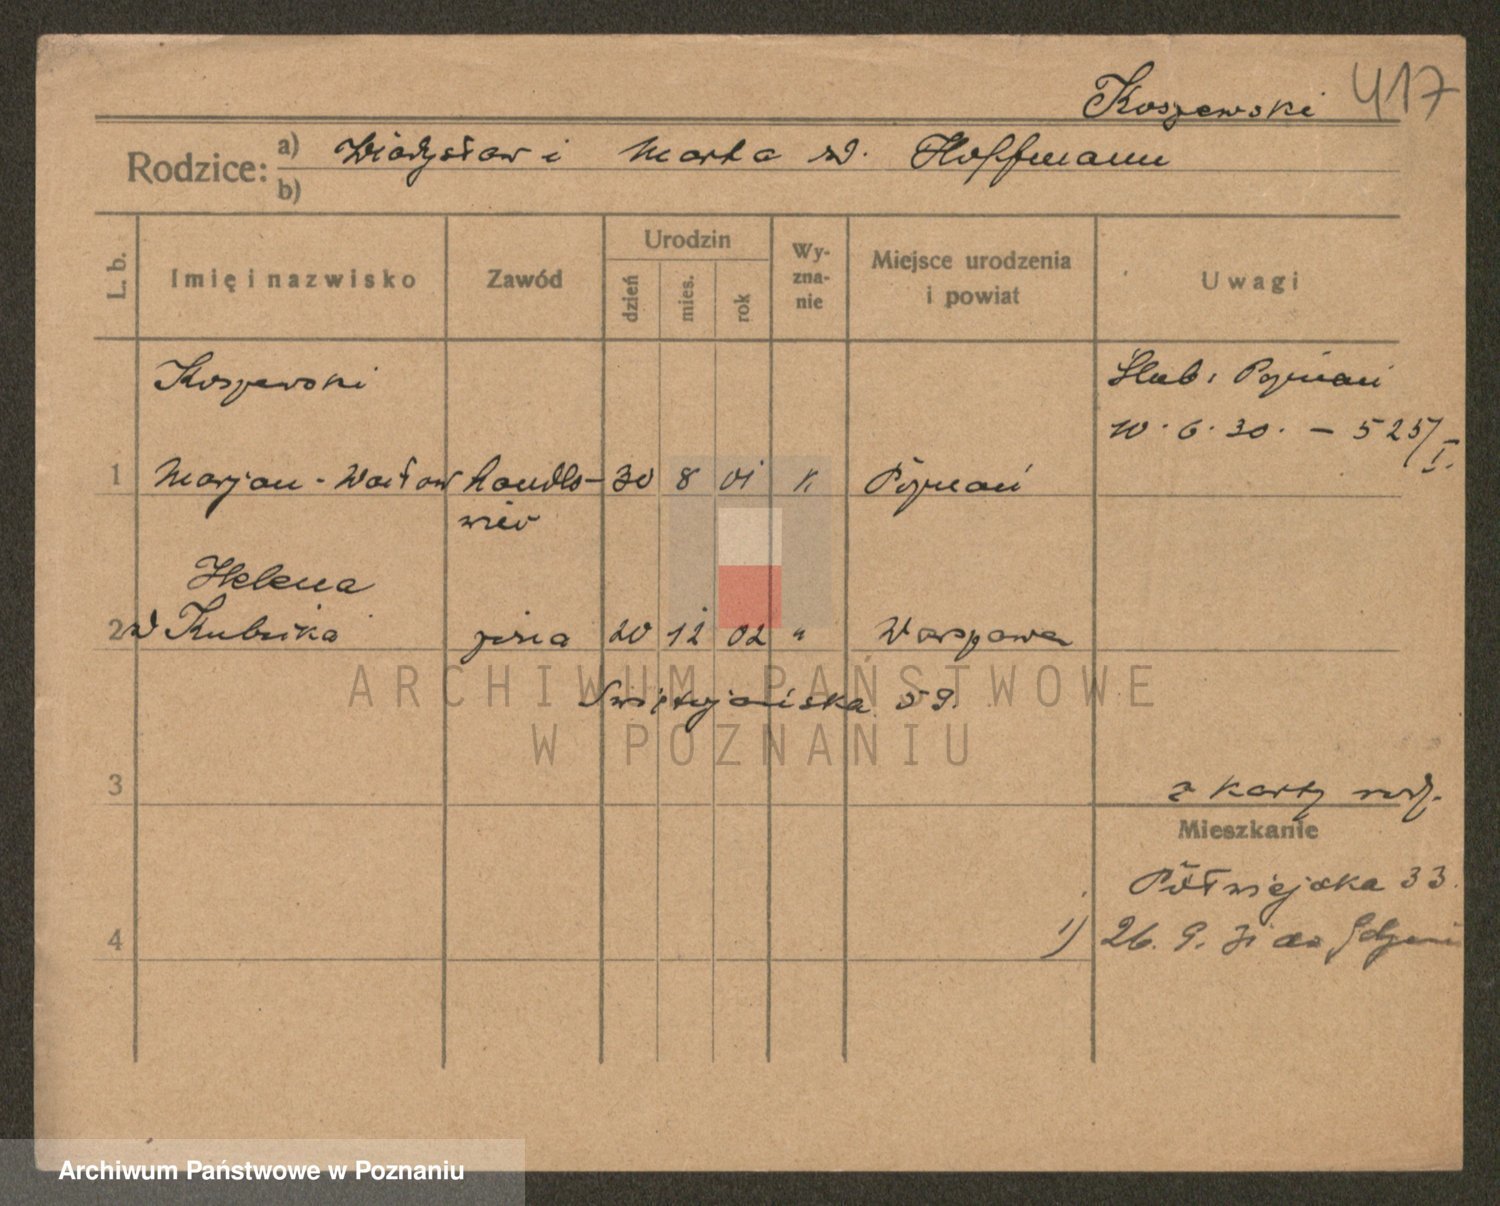 Koszewski 417
Rodzice: a) Władysław i Marta z d. Hoffmann
b)
L. b. Imię i nazwisko Zawód Urodzin dzień mies. rok Wy-zna-nie Miejsce urodzenia i powiat Uwagi
Koszewski Ślub: Poznań
10. 6. 30. – 525/I.
1 Marjan - Wacław handlo- 30 8 01 k Poznań
wiec
Helena
2 zd Kubicka żona 20 12 02 " Warszawa
Świętojańska 59.
ARCHIWUM PAŃSTWOWE
W POZNANIU
3 z karty rodz.
Mieszkanie
Półwiejska 33.
4 1) 26. 9. 31 do Gdyni
Archiwum Państwowe w Poznaniu